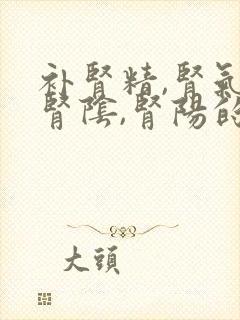 补腎精,腎氣
腎陰,腎陽的
大頭